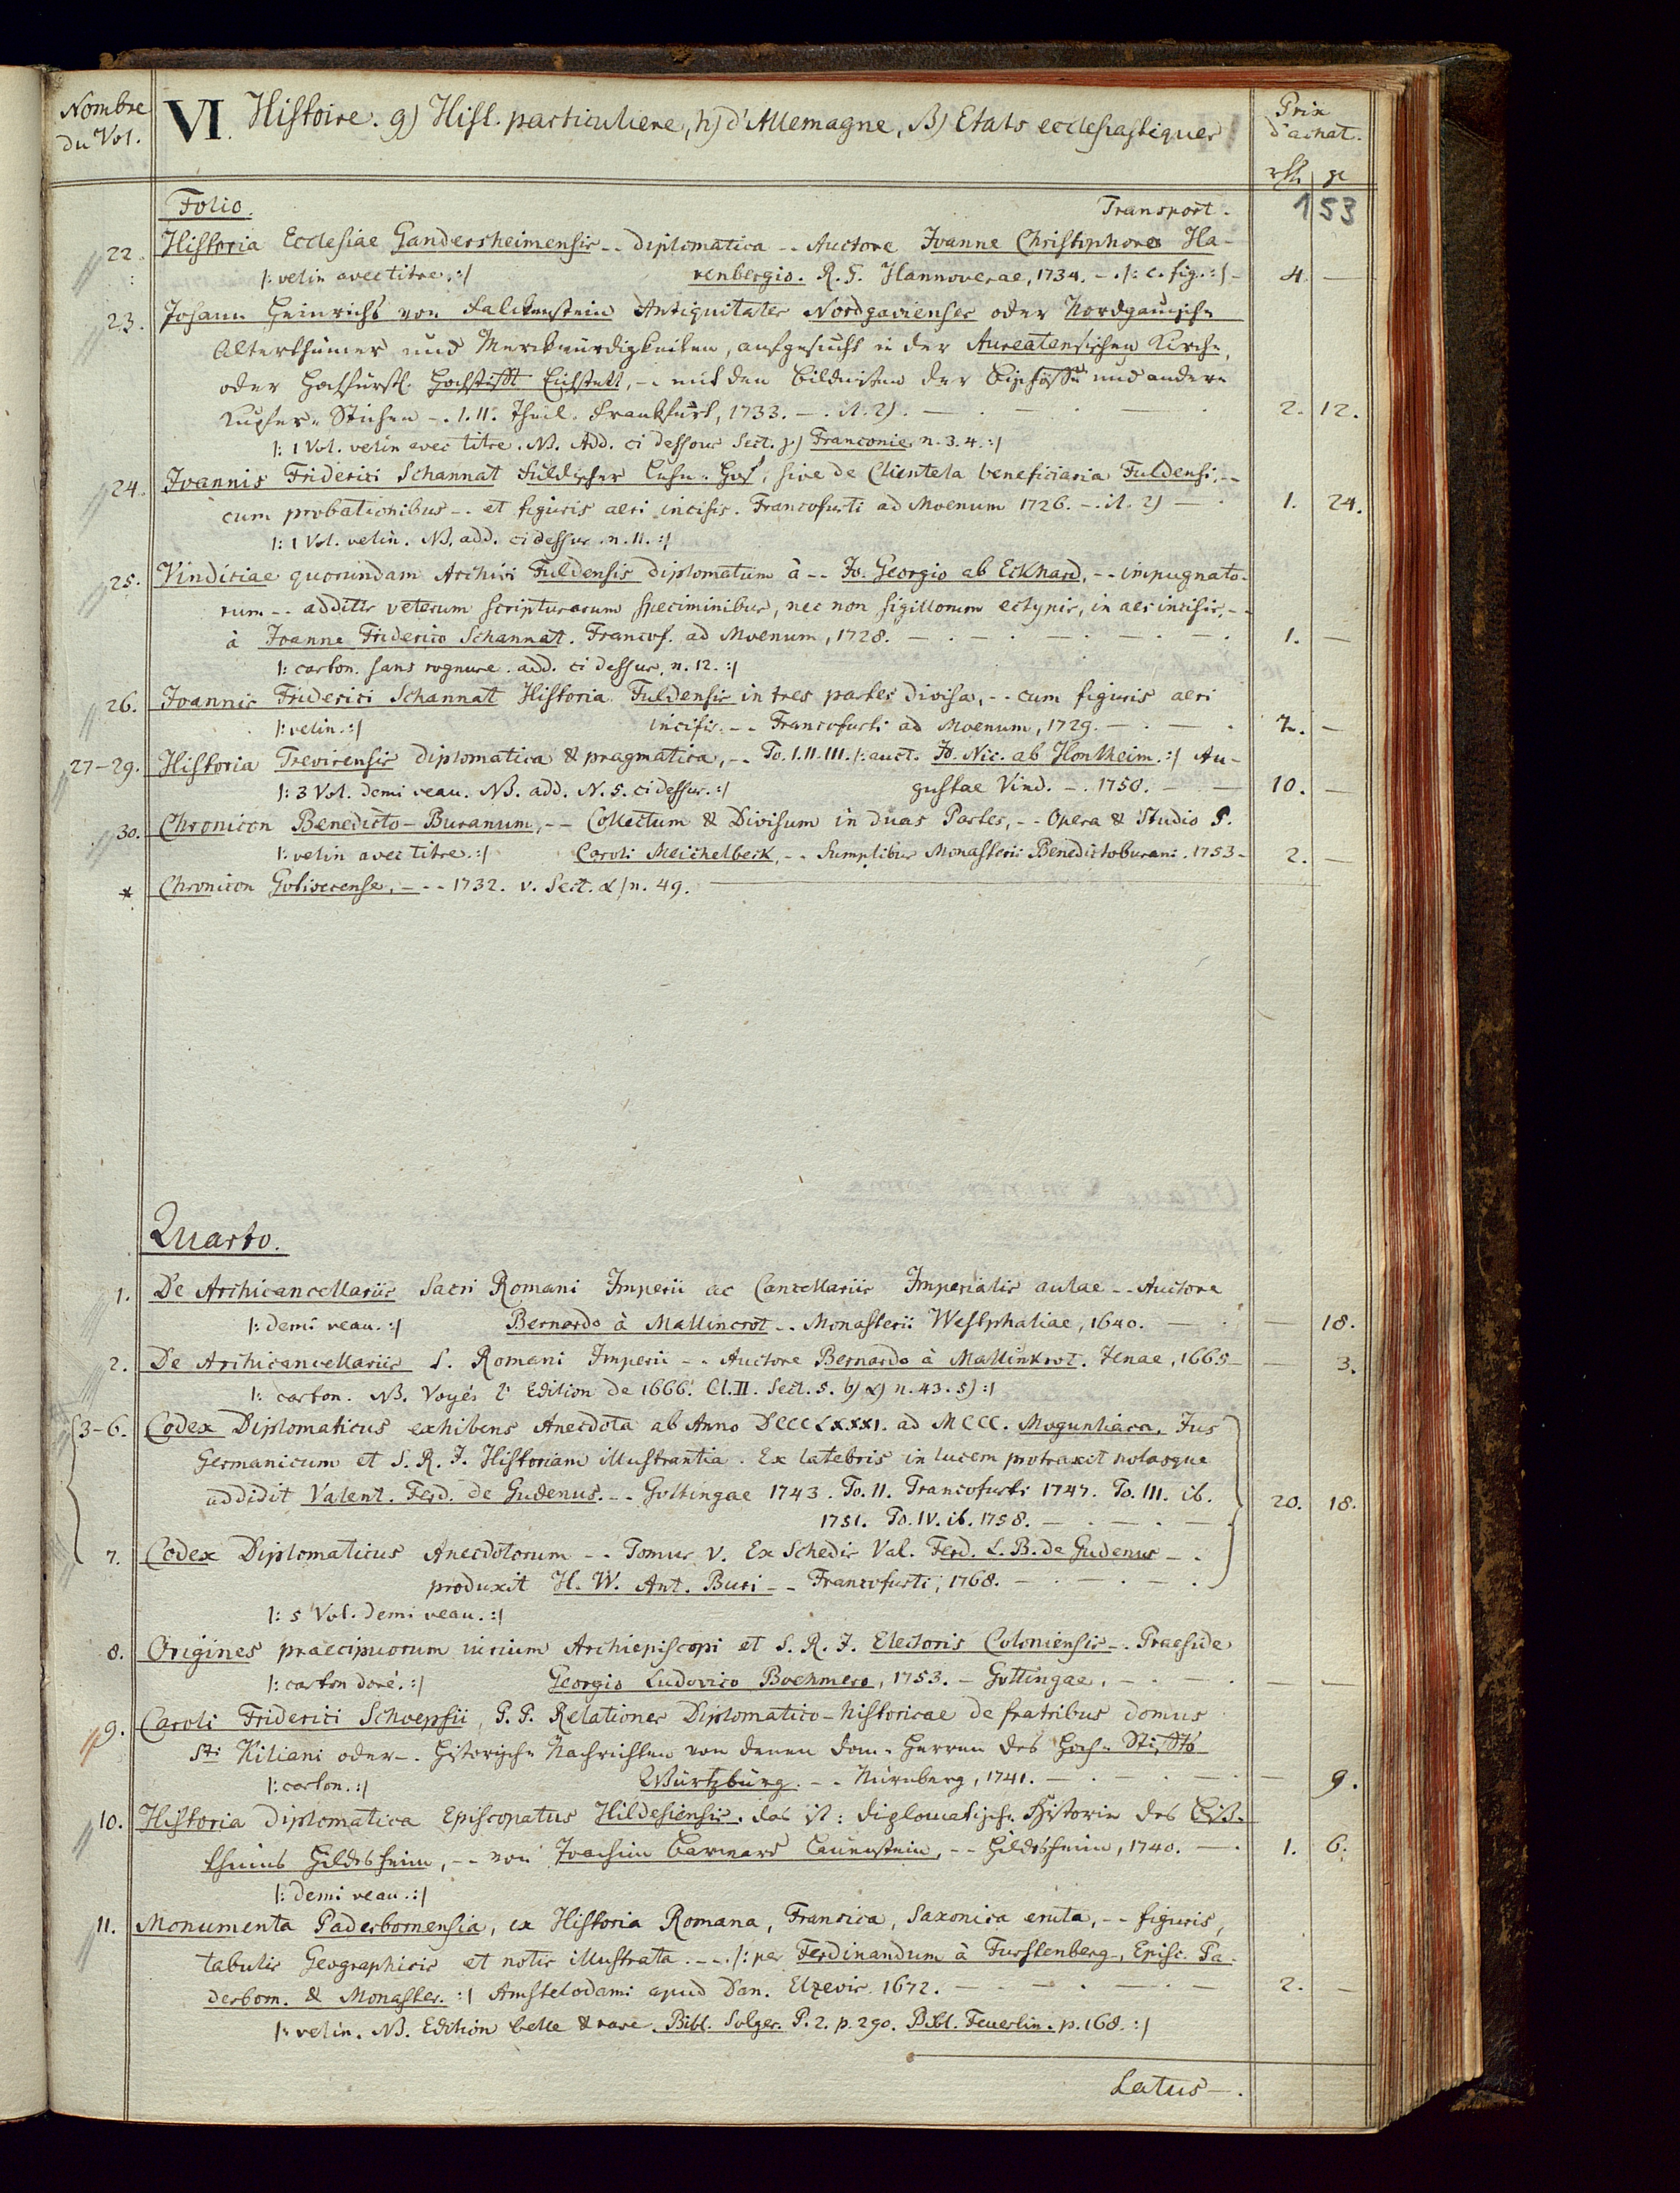 Nombre du Vol.
VI. Histoire. g) Hist. particuliere, h) d'Allemagne, β) Etats ecclesiastiques
Prix d'achat.
rth. gr
Folio. Transport. 153
22. Historia Ecclesiae Gandersheimensis -- diplomatica -- Auctore Ioanne Christophoro Ha-
|: velin avec titre. :| renbergio. R. F. Hannoverae, 1734. - . |: c. fig. :| - 4. —
23. Johann Heinrichs von Falckenstein Antiquitates Nordgavienses oder Nordgauische
Alterthümer und Merckwürdigkeiten, aufgesucht in der Aureatensischen Kirche,
oder Hochfürstl. Hochstifft Eichstett, -. mit den Bildnissen der Bischöffe und andern
Kupfer-Stichen -. I. II. Theil. Franckfurt, 1733. -. il. 2). — . — . — . 2. 12.
|: 1 Vol. velin avec titre. NB. Add. ci dessous Sect. γ) Franconie n. 3. 4. :|
24. Ioannis Friderici Schannat Fuldischer Lehn-Hof, sive de Clientela beneficiaria Fuldensi, --
cum probationibus -. et figuris aeri incisis. Francofurti ad Moenum 1726. -. il. 2) — 1. 24.
|: 1 Vol. velin. NB. add. ci dessus n. 11. :|
25. Vindiciae quorundam Archivi Fuldensis diplomatum à -- Jo. Georgio ab Eckhard, -- impugnato-
rum -- additis veterum scripturarum speciminibus, nec non sigillorum ectypis, in aes incisis, --
à Ioanne Friderico Schannat. Francof. ad Moenum, 1728. — . — . — . — . 1. —
|: carton. sans rognure. add. ci dessus, n. 12. :|
26. Ioannis Friderici Schannat Historia Fuldensis in tres partes divisa, -- cum figuris aeri
|: velin. :| incisis. -- Francofurti ad Moenum, 1729. — . — . 2. —
27-29. Historia Trevirensis diplomatica & pragmatica, -. To. I. II. III. |: auct. Jo. Nic. ab Hontheim. :| Au-
|: 3 Vol. demi veau. NB. add. N. 5. ci dessus. :| gustae Vind. -. 1750. — — 10. —
30. Chronicon Benedicto-Buranum, -- Collectum & Divisum in duas Partes, -- Opera & Studio P.
|: velin avec titre. :| Caroli Meichelbeck, -. Sumptibus Monasterii Benedictoburani. 1753 - 2. —
* Chronicon Gotwicense, -- - 1732. v. Sect. α) n. 49.
Quarto.
1. De Archicancellariis Sacri Romani Imperii ac Cancellariis Imperialis aulae -- Auctore
|: demi veau. :| Bernardo à Mallincrot -. Monasterii Westphaliae, 1640. — . — 18.
2. De Archicancellariis S. Romani Imperii -. Auctore Bernardo à Mallinkrot. Jenae, 1665 - — 3.
|: carton. NB. Voyés l'Edition de 1666. Cl. II. Sect. 5. b) α) n. 43. 5) :|
3-6. Codex Diplomaticus exhibens Anecdota ab Anno DCCCLXXXI. ad MCCC. Moguntiaca, Jus
Germanicum et S. R. I. Historiam illustrantia. Ex latebris in lucem protraxit notasque
addidit Valent. Ferd. de Gudenus. -- Gottingae 1743. To. II. Francofurti 1747. To. III. ib. 20. 18.
1751. To. IV. ib. 1758. — . — . —
7. Codex Diplomaticus Anecdotorum -. Tomus V. Ex Schedis Val. Ferd. L. B. de Gudenus - .
produxit H. W. Ant. Buri -- Francofurti, 1768. — . — . — .
|: 5 Vol. demi veau. :|
8. Origines praecipuorum iurium Archiepiscopi et S. R. I. Electoris Coloniensis -. Praeside
|: carton doré. :| Georgio Ludovico Boehmero, 1753. - Gottingae. — . — . — —
9. Caroli Friderici Schoepfii, P. P. Relationes Diplomatico-historicae de fratribus domus
Sti. Kiliani oder -. Historische Nachrichten von denen Dom-Herren des Hoch-Stiffts
|: carton. :| Würtzburg. -. Nürnberg, 1741. — . — . — — 9.
10. Historia Diplomatica Episcopatus Hildesiensis. das ist: diplomatische Historie des Biß-
thums Hildesheim, -- von Joachim Barward Lauenstein, -- Hildesheim, 1740. — . 1. 6.
|: demi veau. :|
11. Monumenta Paderbornensia, ex Historia Romana, Francica, Saxonica eruta, -- figuris,
tabulis Geographicis et notis illustrata. -- . |: per Ferdinandum à Furstenberg, Episc. Pa-
derborn. & Monaster. :| Amstelodami apud Dan. Elzevir. 1672. — . — . — . — 2. —
|: velin. NB. Edition belle & rare. Bibl. Solger. P. 2. p. 290. Bibl. Feuerlin. p. 168. :|
Latus — .